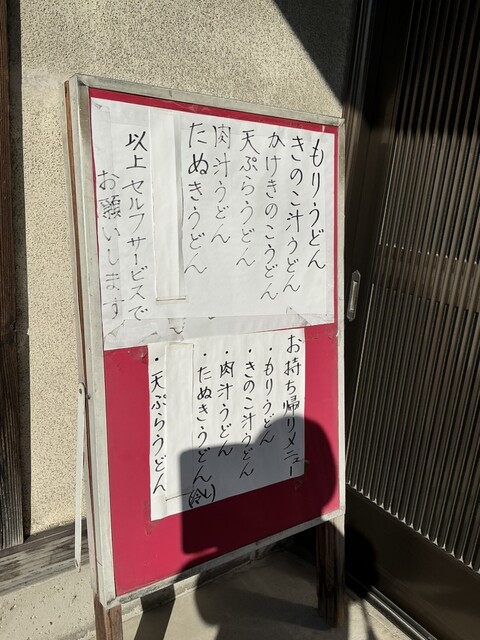 もりうどん
きのこ汁うどん
かけきのこうどん
天ぷらうどん
肉汁うどん
たぬきうどん
以上セルフサービスで
お願いします
お持ち帰りメニュー
・もりうどん
・きのこ汁うどん
・肉汁うどん
・たぬきうどん(冷し)
・天ぷらうどん